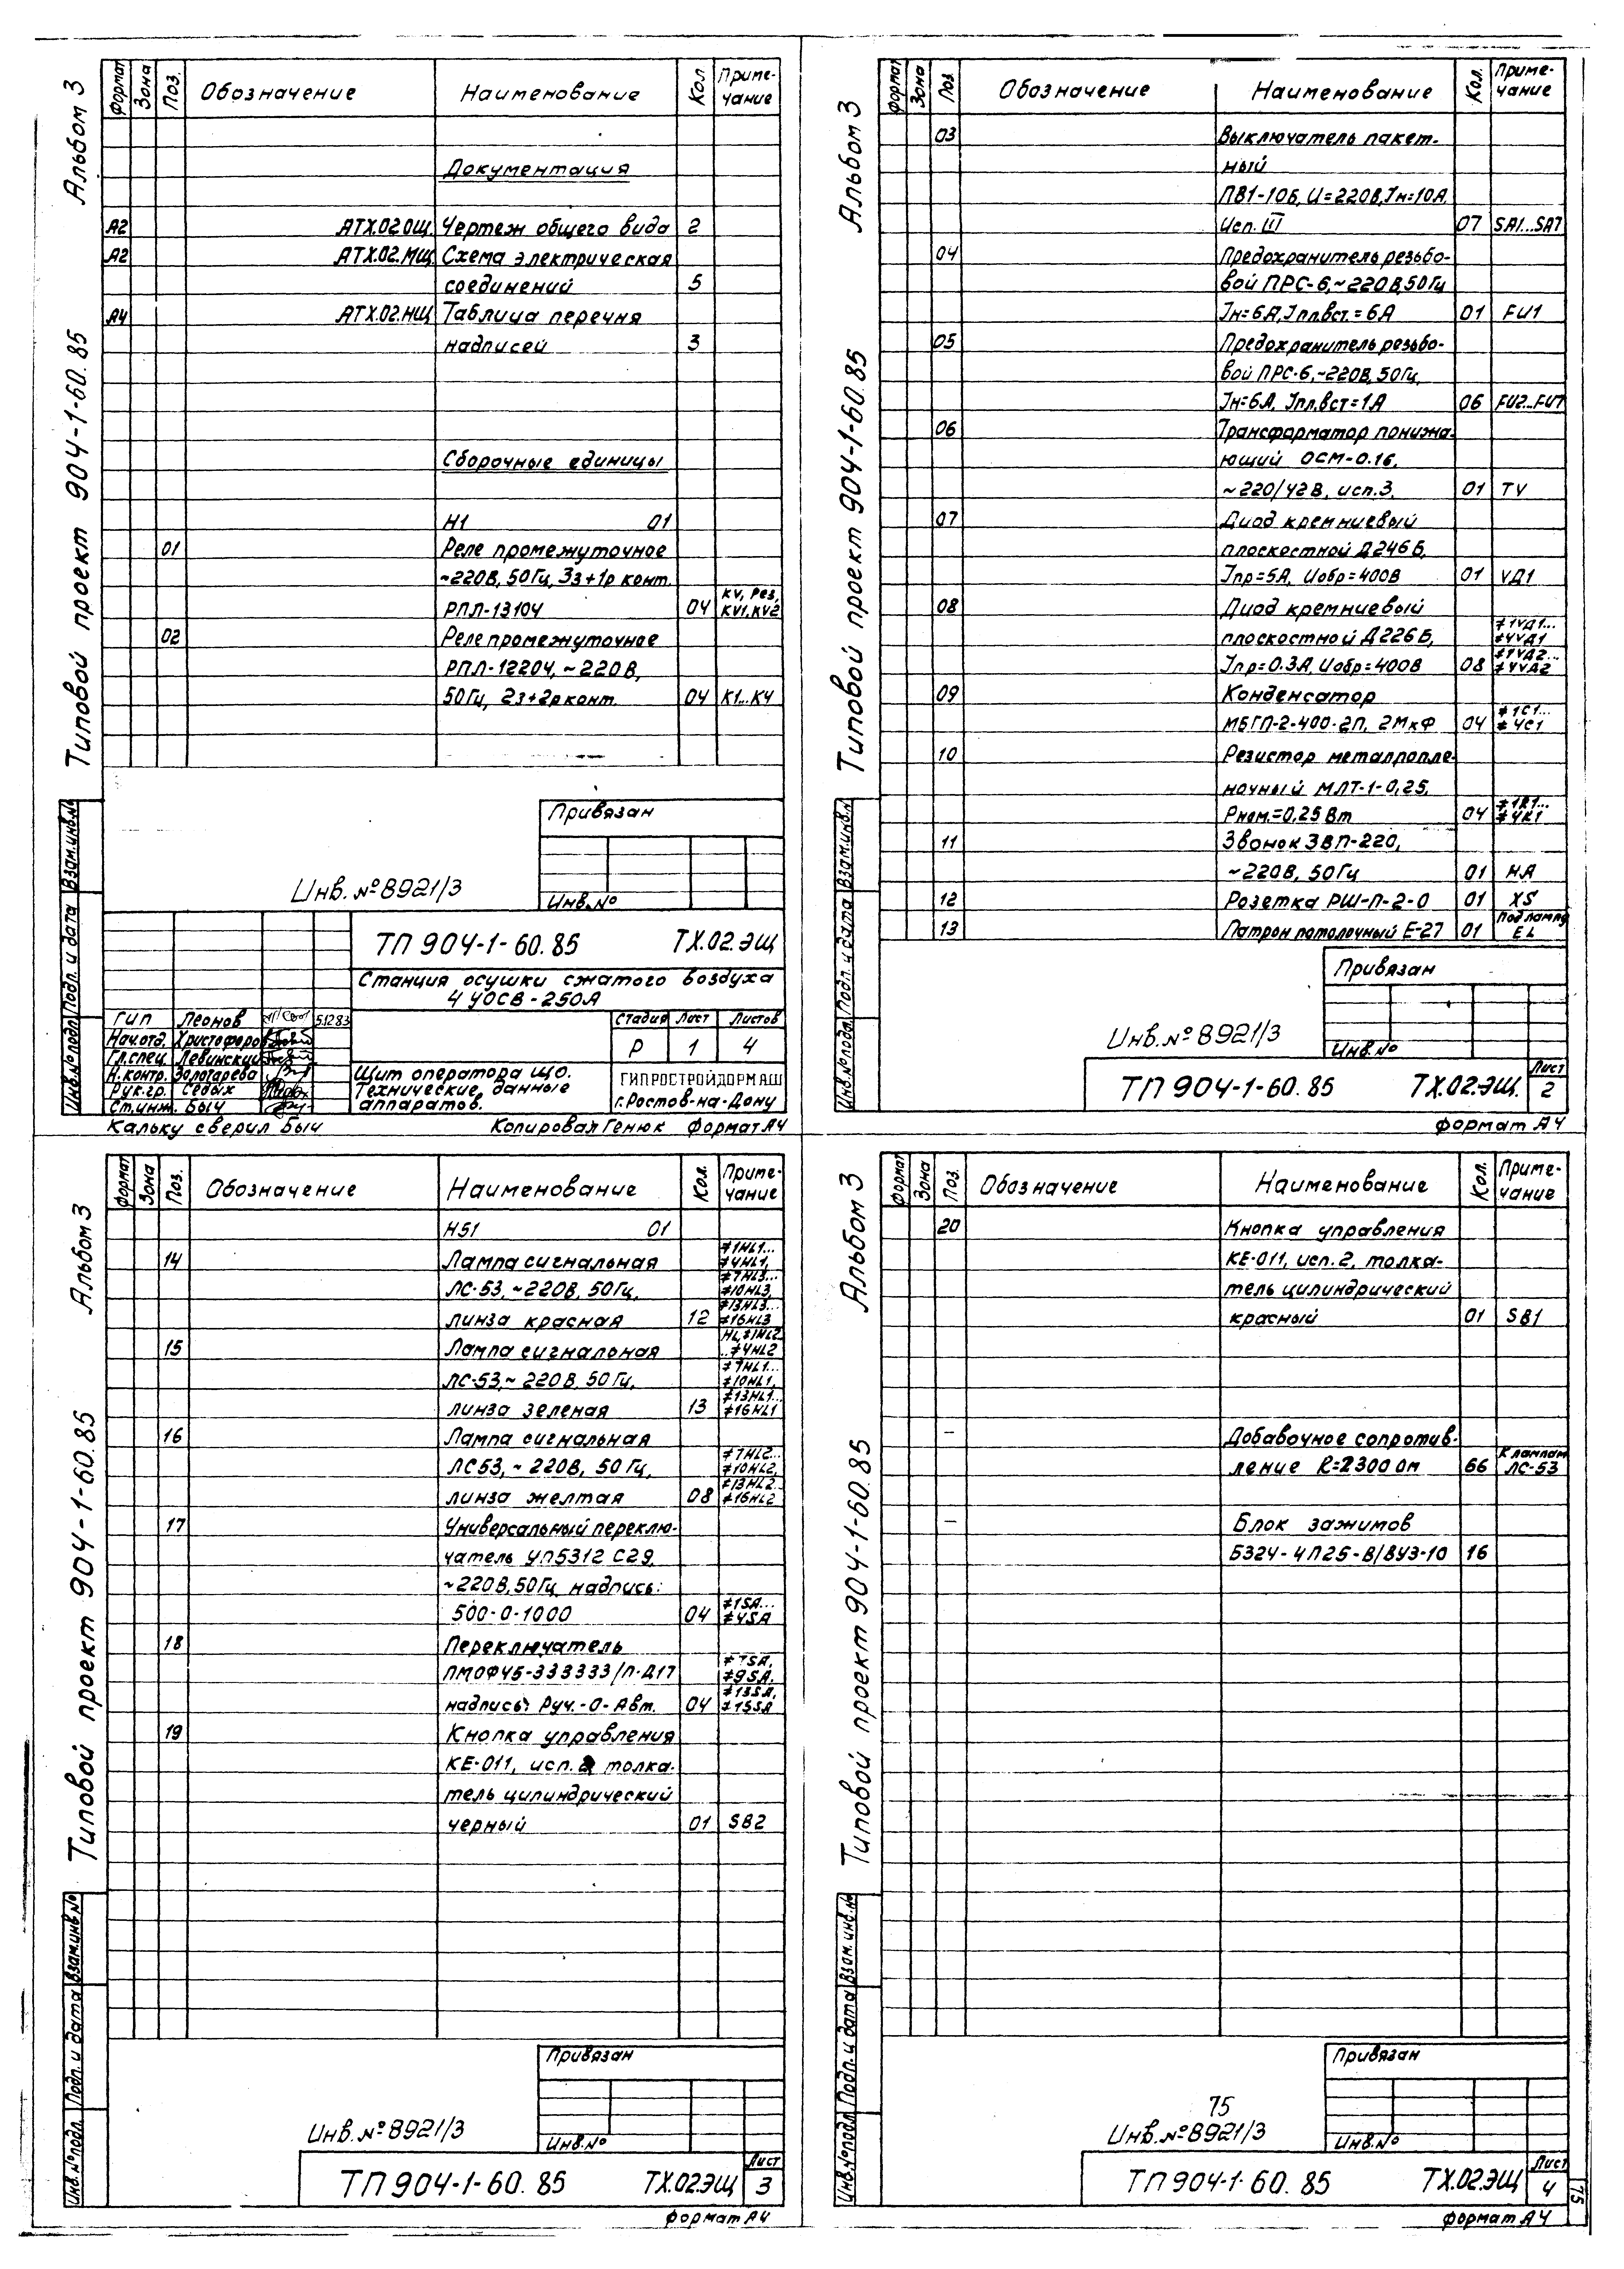 Альбом 3
Типовой проект 904-1-60.85
Формат Зона Поз. Обозначение Наименование Кол Приме-
чание
Документация
А2 АТХ.02.ОЩ. Чертеж общего вида 2
А2 АТХ.02.МЩ Схема электрическая
соединений 5
А4 АТХ.02.НЩ Таблица перечня
надписей 3
Сборочные единицы
Н1 01
01 Реле промежуточное
~220В, 50Гц, 3з+1р конт.
РПЛ-13104 04 KV, Рез,
KV1, KV2
02 Реле промежуточное
РПЛ-12204, ~220В,
50Гц, 2з+2р конт. 04 К1...К4
Привязан
Инв.№
Инв. №8921/3
Взам.инв.№
Подп. и дата
Инв.№ подл.
ТП 904-1-60.85 ТХ.02.ЭЩ
Станция осушки сжатого воздуха
4 УОСВ-250А
ГИП Леонов 5.12.83
Нач.отд. Христофоров
Гл.спец. Левинский
Н.контр. Золотарева
Рук.гр. Седых
Ст.инж. Быч
Стадия Лист Листов
Р 1 4
Щит оператора ЩО.
Технические данные
аппаратов.
ГИПРОСТРОЙДОРМАШ
г.Ростов-на-Дону
Кальку сверил Быч Копировал Генюк Формат А4
Альбом 3
Типовой проект 904-1-60.85
Формат Зона Поз. Обозначение Наименование Кол. Приме-
чание
03 Выключатель пакет-
ный
ПВ1-10Б, U=220В, Iн=10А,
Исп. III 07 SA1...SA7
04 Предохранитель резьбо-
вой ПРС-6, ~220В, 50Гц
Iн=6А, Iпл.вст.=6А 01 FU1
05 Предохранитель резьбо-
вой ПРС-6, ~220В, 50Гц,
Iн=6А, Iпл.вст=1А 06 FU2...FU7
06 Трансформатор понижа-
ющий ОСМ-0.16,
~220/42В, исп.3. 01 TV
07 Диод кремниевый
плоскостной Д246Б,
Iпр=5А, Uобр=400В 01 VД1
08 Диод кремниевый
плоскостной Д226Б, ≠1VД1...
≠4VД1
Iпр=0.3А, Uобр=400В 08 ≠1VД2...
≠4VД2
09 Конденсатор
МБГП-2-400-2П, 2МкФ 04 ≠1С1...
≠4С1
10 Резистор металлопле-
ночный МЛТ-1-0,25,
Рном.=0,25 Вт 04 ≠1R1...
≠4R1
11 Звонок ЗВП-220,
~220В, 50Гц 01 НА
12 Розетка РШ-П-2-0 01 XS
13 Патрон потолочный Е-27 01 Под лампу
EL
Привязан
Инв.№
Инв.№8921/3
Взам.инв.№
Подп. и дата
Инв.№ подл.
ТП 904-1-60.85 ТХ.02.ЭЩ. Лист
2
Формат А4
Альбом 3
Типовой проект 904-1-60.85
Формат Зона Поз. Обозначение Наименование Кол. Приме-
чание
Н51 01
14 Лампа сигнальная ≠1HL1...
≠4HL1,
ЛС-53, ~220В, 50Гц, ≠7HL3...
≠10HL3,
линза красная 12 ≠13HL3...
≠16HL3
15 Лампа сигнальная HL, ≠1HL2
...≠4HL2
ЛС-53, ~220В, 50Гц, ≠7HL1...
≠10HL1,
линза зеленая 13 ≠13HL1...
≠16HL1
16 Лампа сигнальная
ЛС53, ~220В, 50Гц, ≠7HL2...
≠10HL2,
линза желтая 08 ≠13HL2...
≠16HL2
17 Универсальный переклю-
чатель УП5312 С29,
~220В, 50Гц надпись:
500-0-1000 04 ≠1SA...
≠4SA
18 Переключатель
ПМОФ45-333333/П-Д17 ≠7SA,
≠9SA,
надпись: Руч.-0-Авт. 04 ≠13SA,
≠15SA
19 Кнопка управления
КЕ-011, исп. толка-
тель цилиндрический
черный 01 SB2
Привязан
Инв.№
Инв.№8921/3
Взам.инв.№
Подп. и дата
Инв.№ подл.
ТП 904-1-60.85 ТХ.02.ЭЩ Лист
3
формат А4
Альбом 3
Типовой проект 904-1-60.85
Формат Зона Поз. Обозначение Наименование Кол. Приме-
чание
20 Кнопка управления
КЕ-011, исп.2, толка-
тель цилиндрический
красный 01 SB1
– Добавочное сопротив-
ление R=2300 Ом 66 К лампам
ЛС-53
– Блок зажимов
Б324-4П25-В/ВУ3-10 16
Привязан
Инв.№
75
Инв.№8921/3
Взам.инв.№
Подп. и дата
Инв.№ подл
ТП 904-1-60.85 ТХ.02.ЭЩ Лист
4
формат А4
75